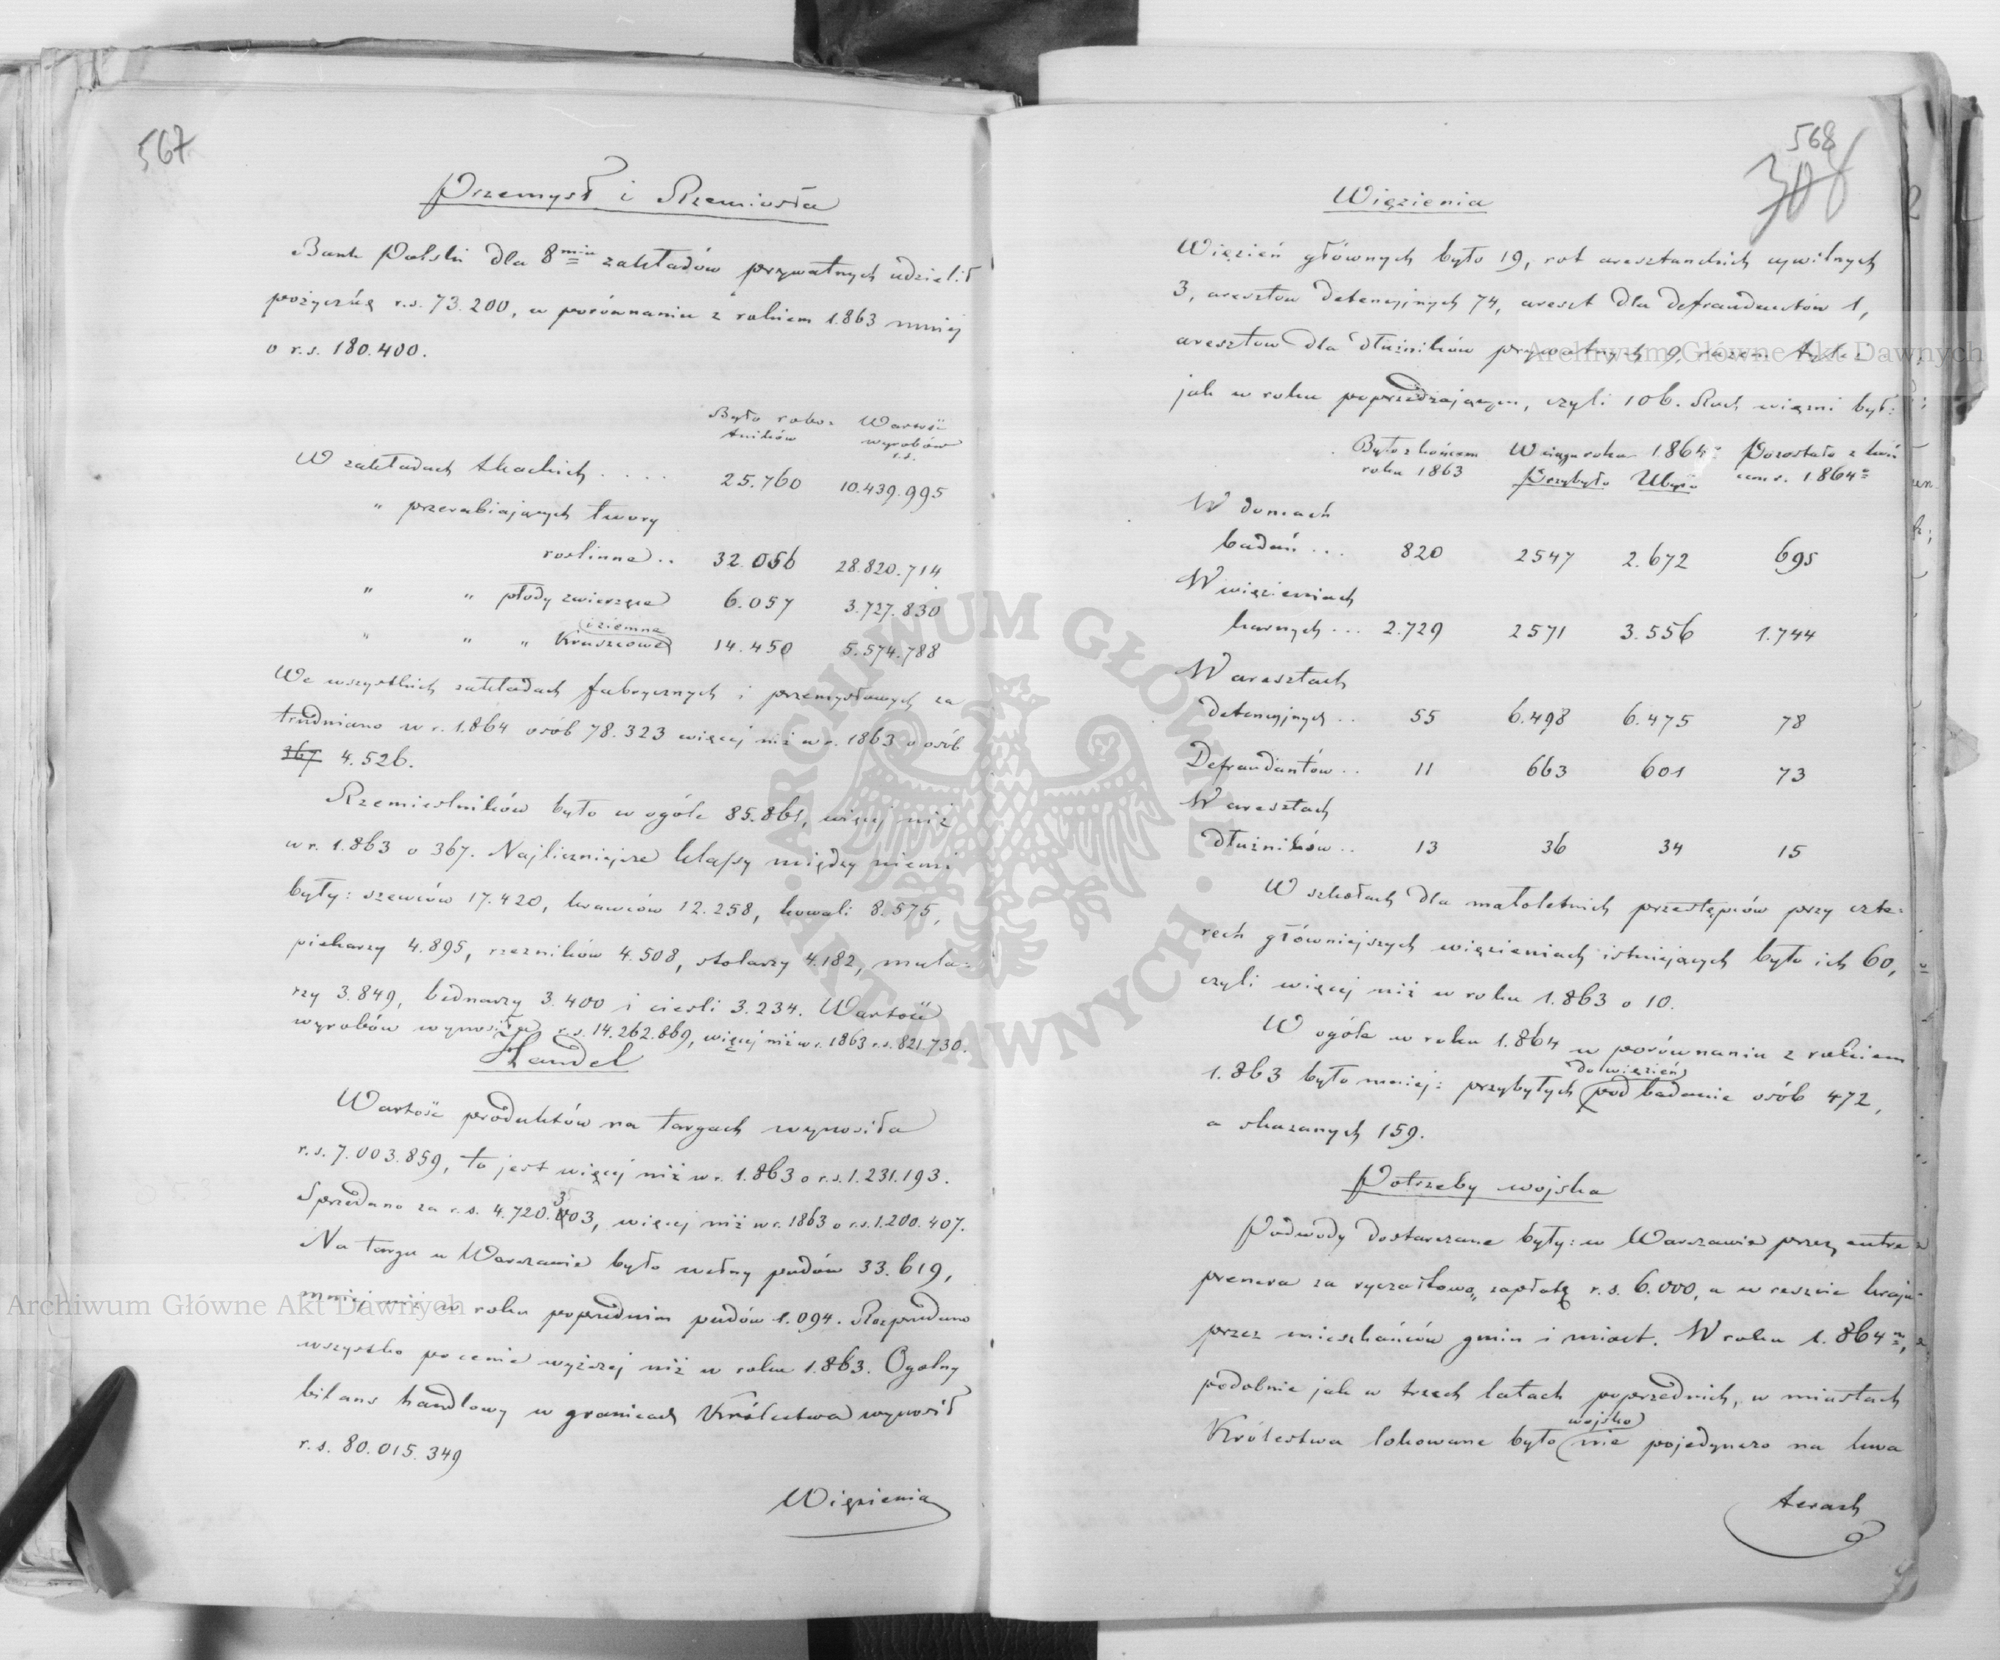 567
Przemysł i Rzemiosła
Bank Polski dla 8miu zakładów prywatnych udzielił
pożyczkę r.s. 73.200, w porównaniu z rokiem 1.863 mniej
o r.s. 180.400.
Było robo= Wartość
tników wyrobów
r.s.
W zakładach tkackich . . . . 25.760 10.439.995
" przerabiających twory
roślinne .. 32.056 28.820.714
" " płody zwierzęce 6.057 3.727.830
i ziemne
" " " Kruszcowe 14.450 5.574.788
We wszystkich zakładach fabrycznych i przemysłowych za
trudniano w r. 1.864 osób 78.323 więcej niż w r. 1863 o osób
367 4.526.
Rzemieślników było w ogóle 85.861, więcej niż
w r. 1.863 o 367. Najliczniejsze klassy między niemi
były: szewców 17.420, krawców 12.258, kowali 8.575,
piekarzy 4.895, rzeźników 4.508, stolarzy 4.182, mula=
rzy 3.849, bednarzy 3.400 i cieśli 3.234. Wartość
wyrobów wynosiła r.s. 14.262.869, więcej niż w r. 1863 r.s. 821.730.
Handel
Wartość produktów na targach wynosiła
r.s. 7.003.859, to jest więcej niż w r. 1.863 o r.s. 1.231.193.
Sprzedano za r.s. 4.720.303, więcej niż w r. 1863 o r.s. 1.200.407.
Na targu w Warszawie było wełny pudów 33.619,
mniej niż w roku poprzednim pudów 1.094. Rozprzedano
wszystko po cenie wyższej niż w roku 1.863. Ogólny
bilans handlowy w granicach Królestwa wynosił
r.s. 80.015.349
Więzienia
568
308
Więzienia
Więzień głównych było 19, rot aresztanckich cywilnych
3, aresztów detencyjnych 74, areszt dla defraudantów 1,
aresztów dla dłużników prywatnych 9, razem tyleż
jak w roku poprzedzającym, czyli 106. Ruch więźni był:
Było z końcem W ciągu roku 1.864 Pozostało z koń
roku 1863 Przybyło Ubyło cem r. 1864
W domach
badań ... 820 2547 2.672 695
W więzieniach
karnych ... 2.729 2571 3.556 1.744
W aresztach
detencyjnych .. 55 6.498 6.475 78
Defraudantów .. 11 663 601 73
W aresztach
dłużników .. 13 36 34 15
W szkołach dla małoletnich przestępców przy czte=
rech główniejszych więzieniach istniejących było ich 60,
czyli więcej niż w roku 1.863 o 10.
W ogóle w roku 1.864 w porównaniu z rokiem
do więzień
1.863 było mniej: przybyłych pod badanie osób 472,
a skazanych 159.
Potrzeby wojska
Podwody dostarczane były: w Warszawie przez entre=
prenera za ryczałtową zapłatę r.s. 6.000, a w reszcie kraju
przez mieszkańców gmin i miast. W roku 1.864,
podobnie jak w trzech latach poprzednich, w miastach
wojsko
Królestwa lokowane było nie pojedynczo na kwa
terach
Archiwum Główne Akt Dawnych
Archiwum Główne Akt Dawnych
ARCHIWUM GŁÓWNE AKT DAWNYCH